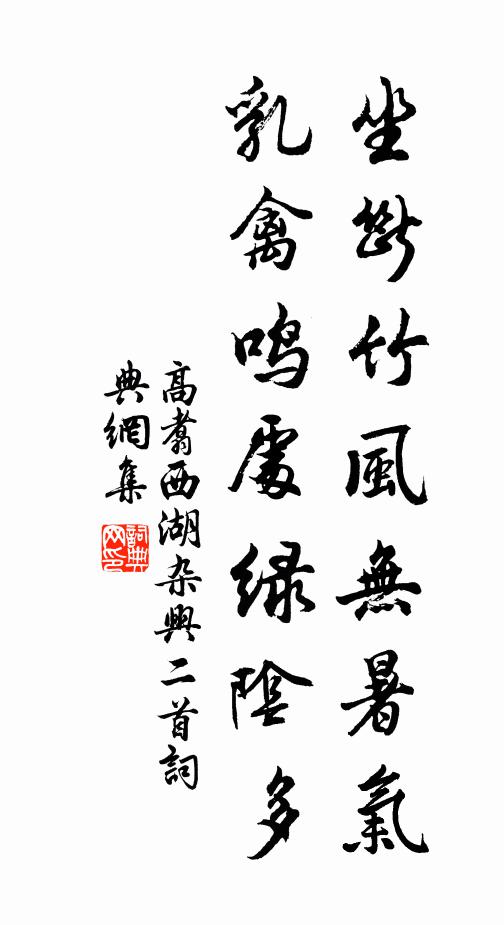 坐斷竹風無暑氣
乳禽鳴處綠陰多
高翥西湖杂興二首詞
典網集
詞典網印